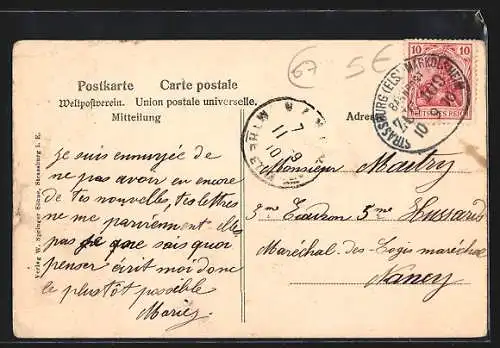 67 5E
Postkarte Carte postale
Weltpostverein. Union postale universelle.
Mitteilung
Adres
10 10
DEUTSCHES REICH
STRASSBURG (ELS) MARKOLSHEIM
10 9 10
7
11
10
9
je suis ennuyée de
ne pas avoir eu encore
de tes nouvelles, tes lettres
ne me parviennent elles
pas je que sais quoi
penser écrit moi donc
le plustôt possible
Mariéz
Monsieur Maitry
3me Escadron 5me Hussards
Maréchal des Logis maréchal
Nancy
Verlag W. Springer Söhne, Strassburg i. E.